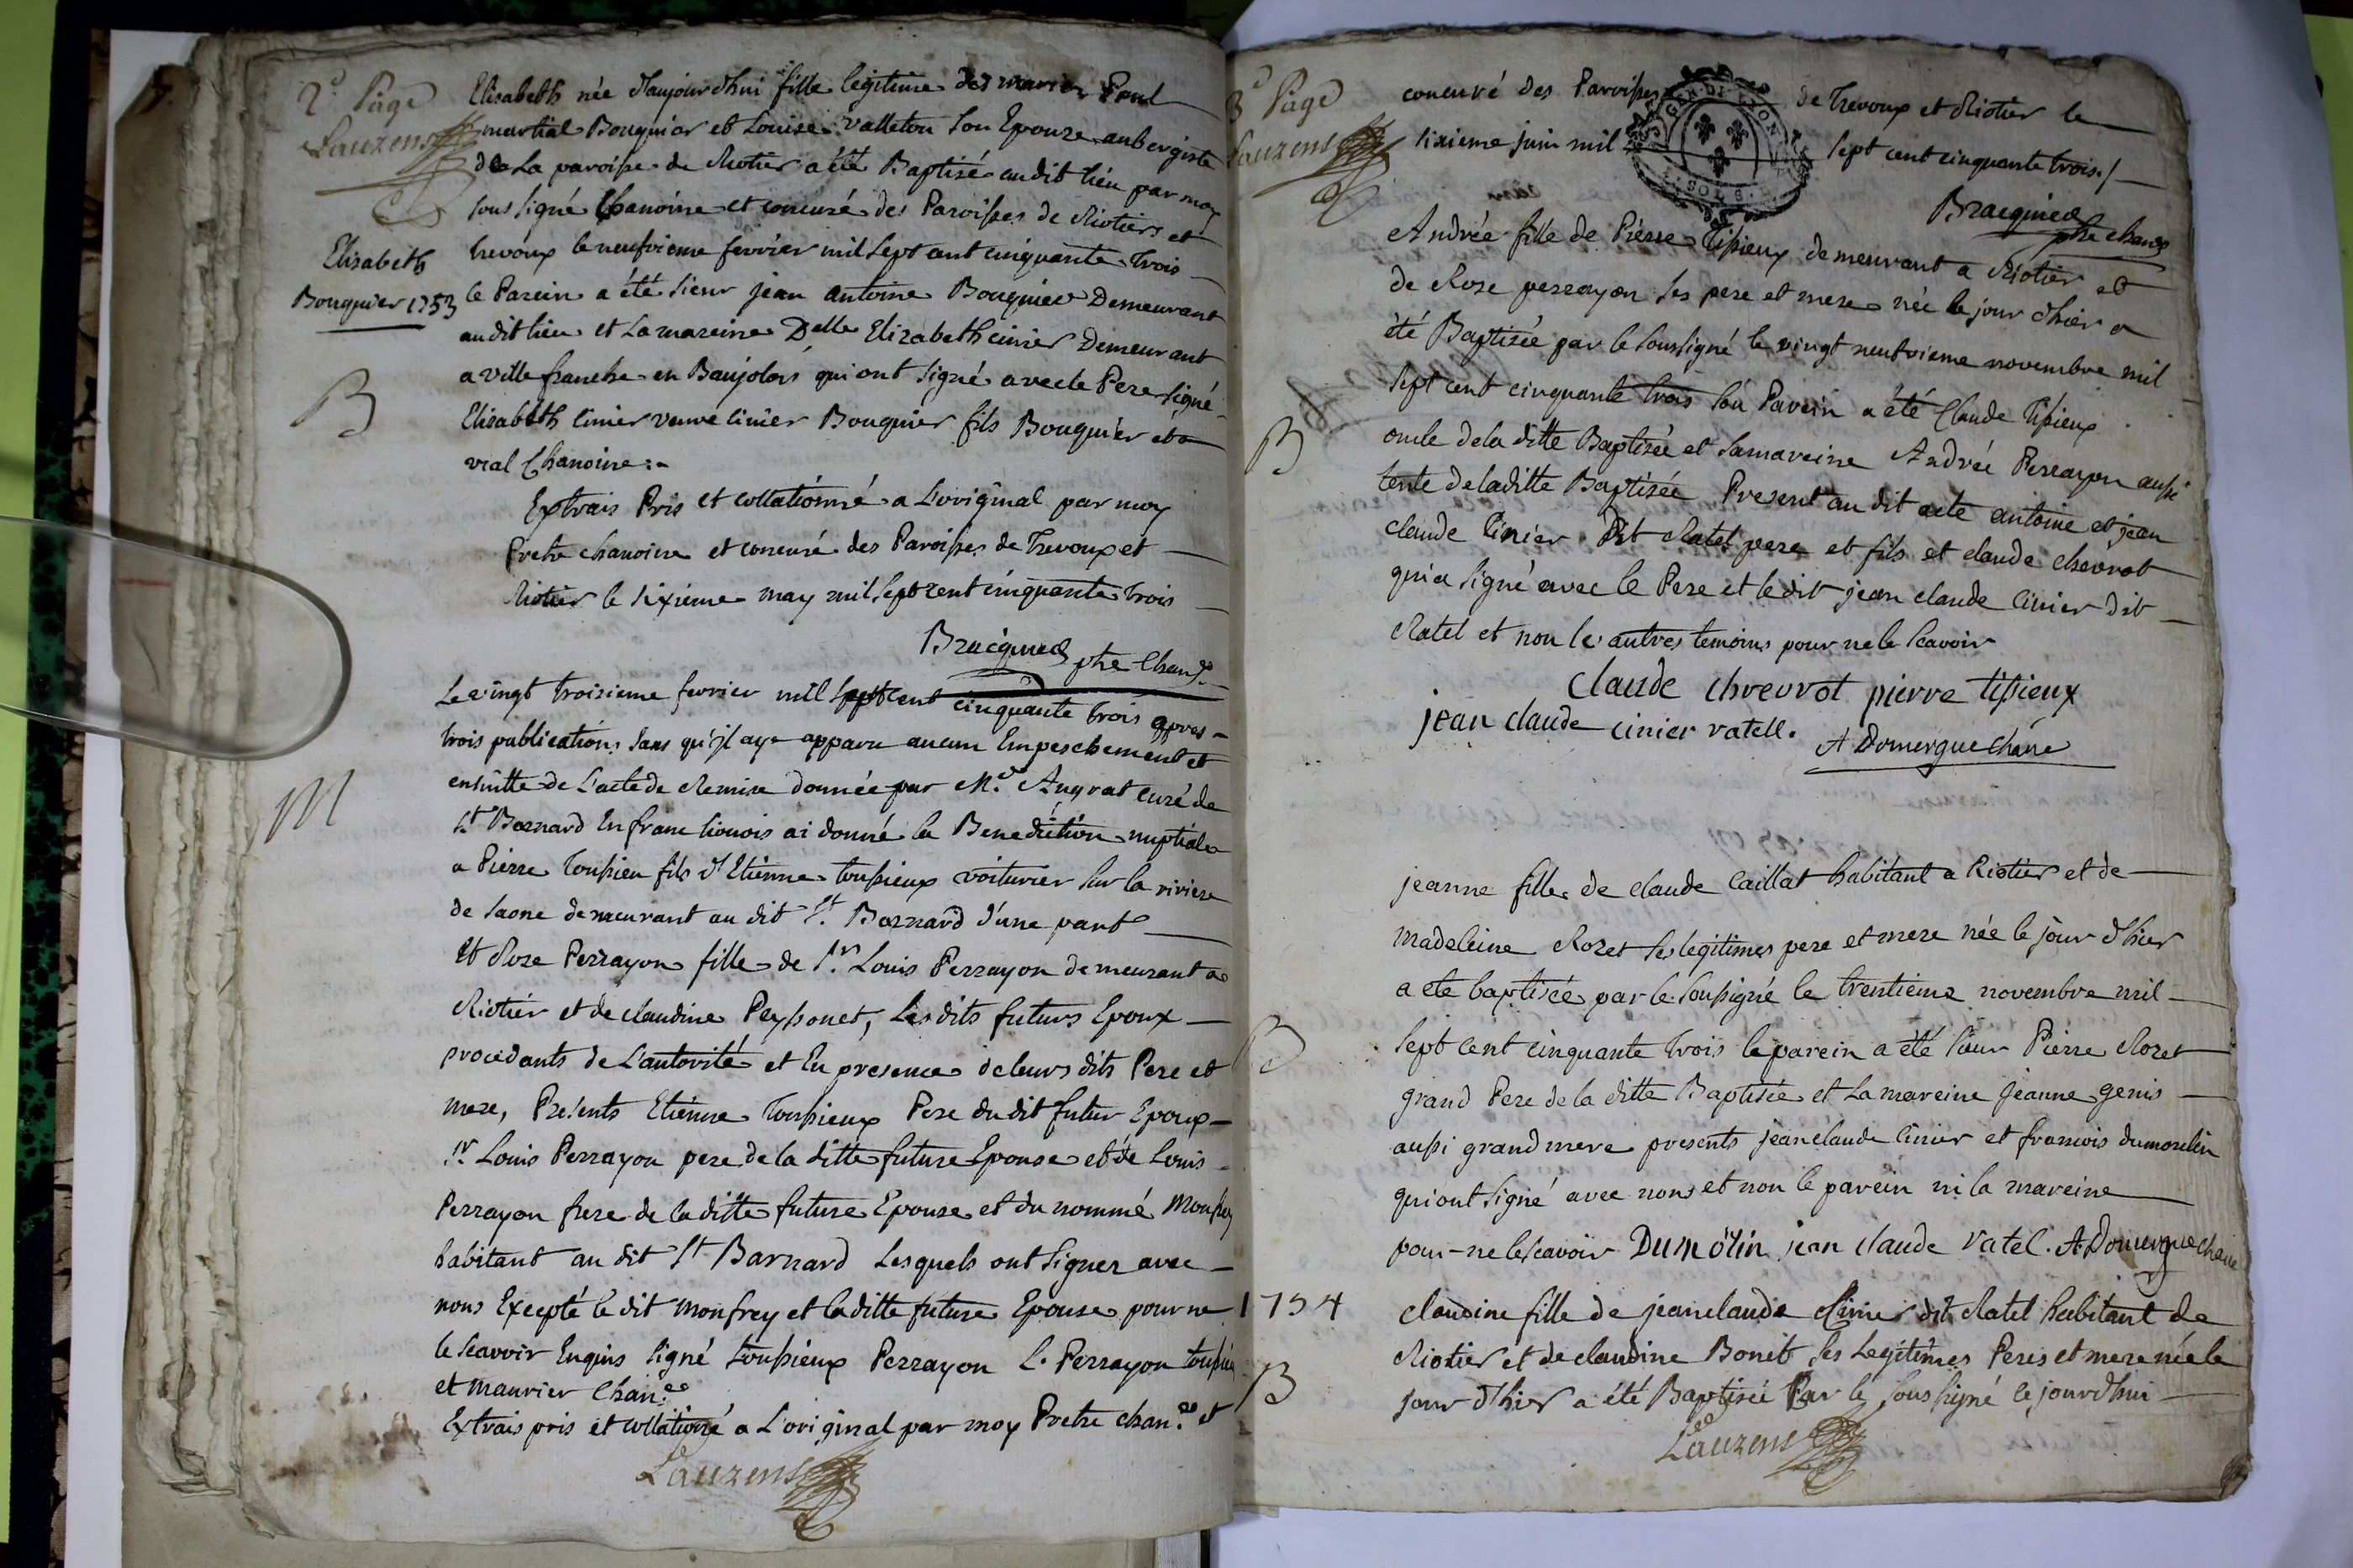 2e Page
Lauzens
Elisabeth née d'aujourdhui fille legitime des mariez Paul
martial Bouquier et Louise Valleton son Epouze aubergiste
de La paroisse de Riotier a été Baptisé audit lieu par moy
sous signé Chanoine et concuré des Paroisses de Riotiers et
trevoux le neufvieme fevrier mil sept cent cinquante trois
Elisabeth
Bouquier 1753
le Parein a été sieur jean antoine Bouquier Demeurant
audit lieu et La mareine Delle Elizabeth cinier Demeurant
a ville franche en Baujolois qui ont signé avec le Pere signé
B
Elisabeth cinier veuve cinier Bouquier fils Bouquier et
vial Chanoine :-
Extrais Pris et collationné a L'original par moy
Pretre chanoine et concuré des Paroisses de Trevoux et
Riotier le sixieme may mil sept cent cinquante trois
Bracquier ptre Chane
Le vingt troisieme fevrier mil sept cent cinquante trois apres
trois publications sans qu'il aye apparu aucun Empeschement et
ensuitte de L'acte de Remise donnée par Mr. Augrat curé de
M
St Barnard En franc lionois ai donné la Benediction nuptiale
a Pierre Toussieu fils d'Etienne toussieux voiturier sur la riviere
de saone demeurant au dit St. Barnard d'une part
et Roze Perrayon fille de Sr. Louis Perrayon demeurant a
Riotier et de claudine Peyssonet, Lesdits futurs Epoux
procedants de L'autorité et En presence de leurs dits Pere et
mere, Presents Etienne Toussieux Pere du dit futur Epoux
Sr. Louis Perrayon pere de la ditte future Epouse et de Louis
Perrayon frere de la ditte future Epouse et du nommé Monfrey
habitant au dit St Barnard Lesquels ont signer avec
nous Excepté le dit monfrey et la ditte future Epouse pour ne
le scavoir Enquis signé toussieux Perrayon L. Perrayon
et maurier Chane
Extrais pris et collationné a L'original par moy Pretre chane et
Lauzens
3e Page
Lauzens
concuré des Paroisses de Trevoux et Riotier le
sixieme juin mil sept cent cinquante trois ./
GEN. DE LYON
SOLS
Bracquier
ptre chane
Andrée fille de Pierre Tissieux demeurant a Riotier et
de Rose perrayon ses pere et mere née le jour d'hier a
été Baptisée par le soussigné le vingt neufvieme novembre mil
sept cent cinquante trois son Parein a été Claude Tissieux
B
oncle dela ditte Baptisée et sa mareine Andrée Perrayon aussi
tente de laditte Baptisée Present au dit acte antoine et jean
claude Cinier Dit Ratel pere et fils et claude chevrot
qui a signé avec le Pere et le dit jean claude Cinier dit
Ratel et non les autres temoins pour ne le scavoir
claude chvevrot pierre tissieux
jean claude cinier ratell. A Domergue Chane
jeanne fille de claude Caillat habitant a Riotier et de
madeleine Rozet ses legitimes pere et mere née le jour d'hier
a ete baptisée par le soussigné le trentieme novembre mil
B
sept cent cinquante trois le parein a été sieur Pierre Rozet
grand Pere de la ditte Baptisée et La mareine jeanne genis
aussi grand mere presents jean claude Cinier et francois dumoulin
qui ont signé avec nous et non le parein ni la mareine
pour ne le scavoir Dumolin jean claude ratel. A Domergue chane
1754
claudine fille de jean claude Cinier dit Ratel habitant de
Riotier et de claudine Bonet ses Legitimes Peres et mere née le
B
jour d'hier a été Baptisée Par le soussigné le jourd'hui
Lauzens